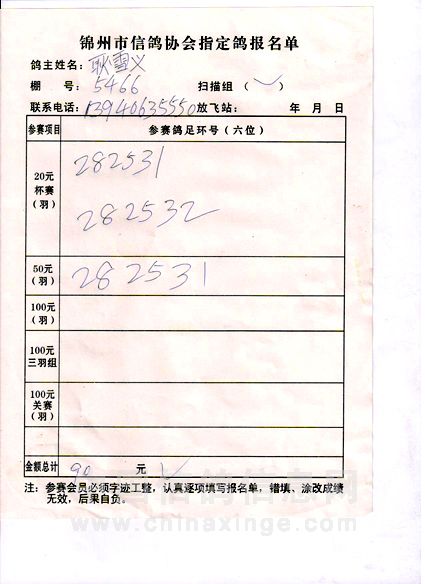 锦州市信鸽协会指定鸽报名单
鸽主姓名：耿雪义
棚 号：5466 扫描组（✓）
联系电话：13940635550 放飞站： 年 月 日
参赛项目 参赛鸽足环号（六位）
20元
杯赛
（羽）
282531
282532
50元
（羽）
282531
100元
（羽）
100元
三羽组
100元
关赛
（羽）
金额总计 90 元 ✓
注：参赛会员必须字迹工整，认真逐项填写报名单，错填、涂改成绩
无效，后果自负。
中国信鸽信息网
www.chinaxinge.com